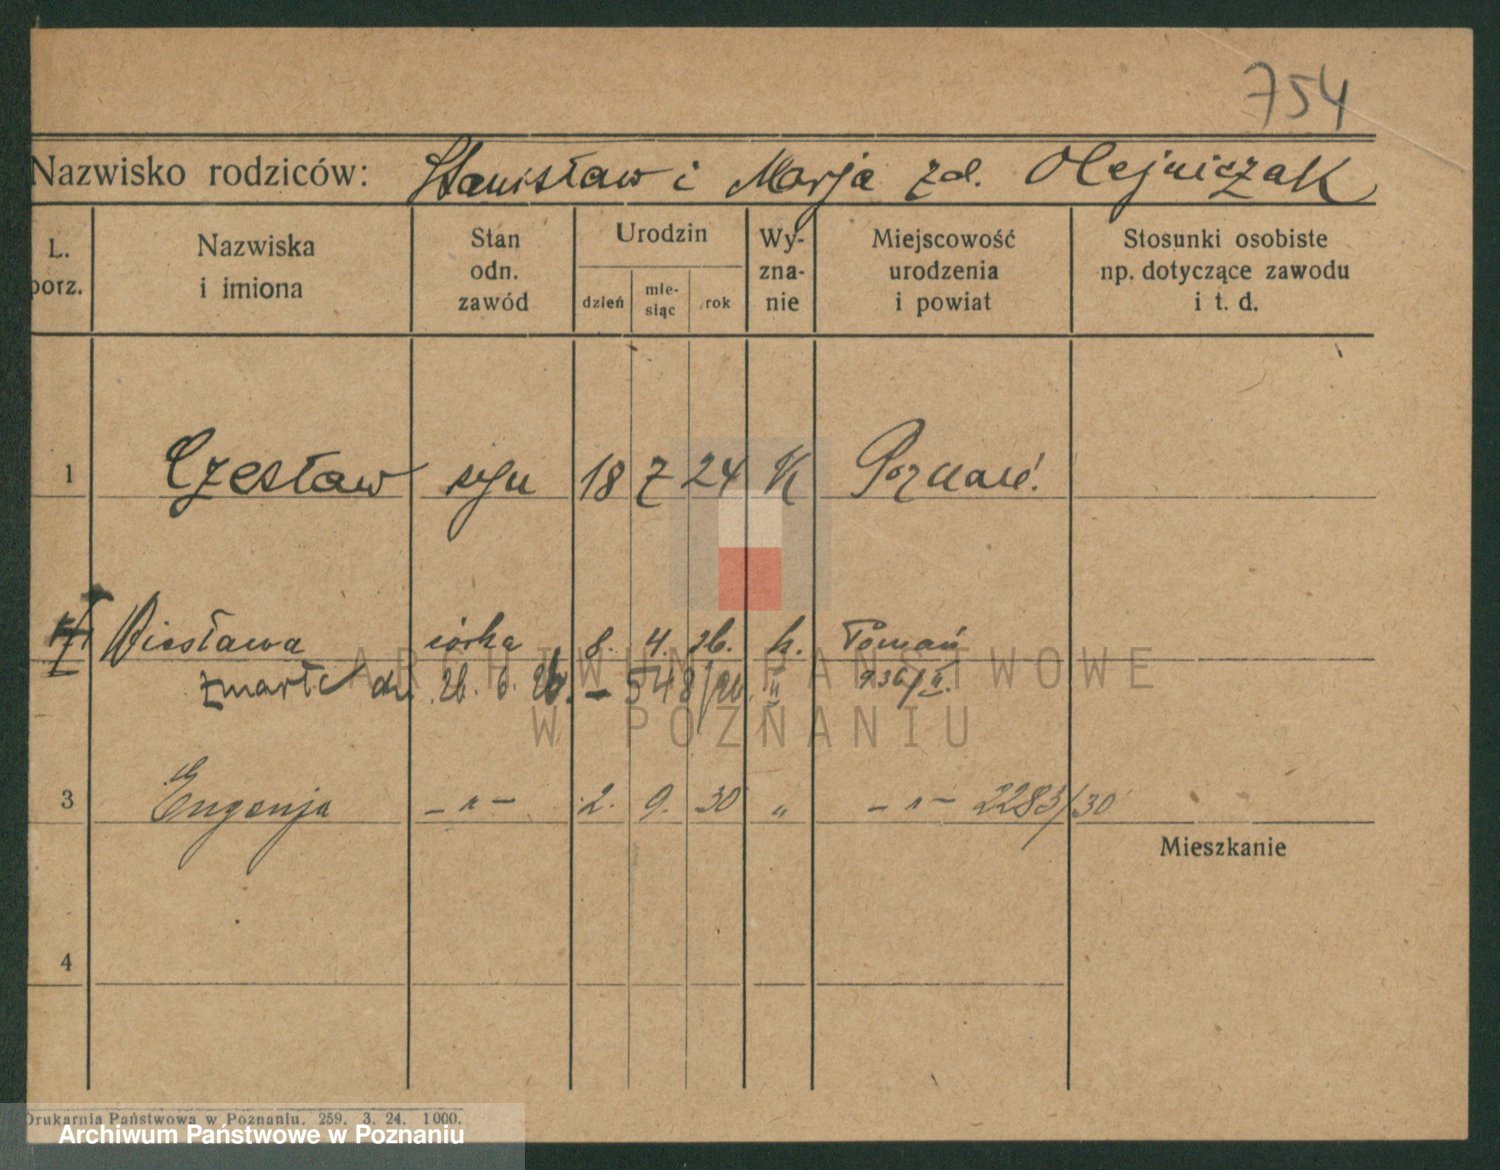 754
Nazwisko rodziców: Stanisław i Marja zd. Olejniczak
L. porz. Nazwiska i imiona Stan odn. zawód Urodzin dzień mie-siąc rok Wy-zna-nie Miejscowość urodzenia i powiat Stosunki osobiste np. dotyczące zawodu i t. d.
1 Czesław syn 18 7 24 K Poznań.
Wiesława córka 8. 4. 26. k. Poznań
zmarła dn. 26. 6. 26. – 548/26. II 936/II.
3 Eugenja – „ – 2. 9. 30 „ – „ – 2283/30
Mieszkanie
4
ARCHIWUM PAŃSTWOWE
W POZNANIU
Drukarnia Państwowa w Poznaniu. 259. 3. 24. 1000.
Archiwum Państwowe w Poznaniu